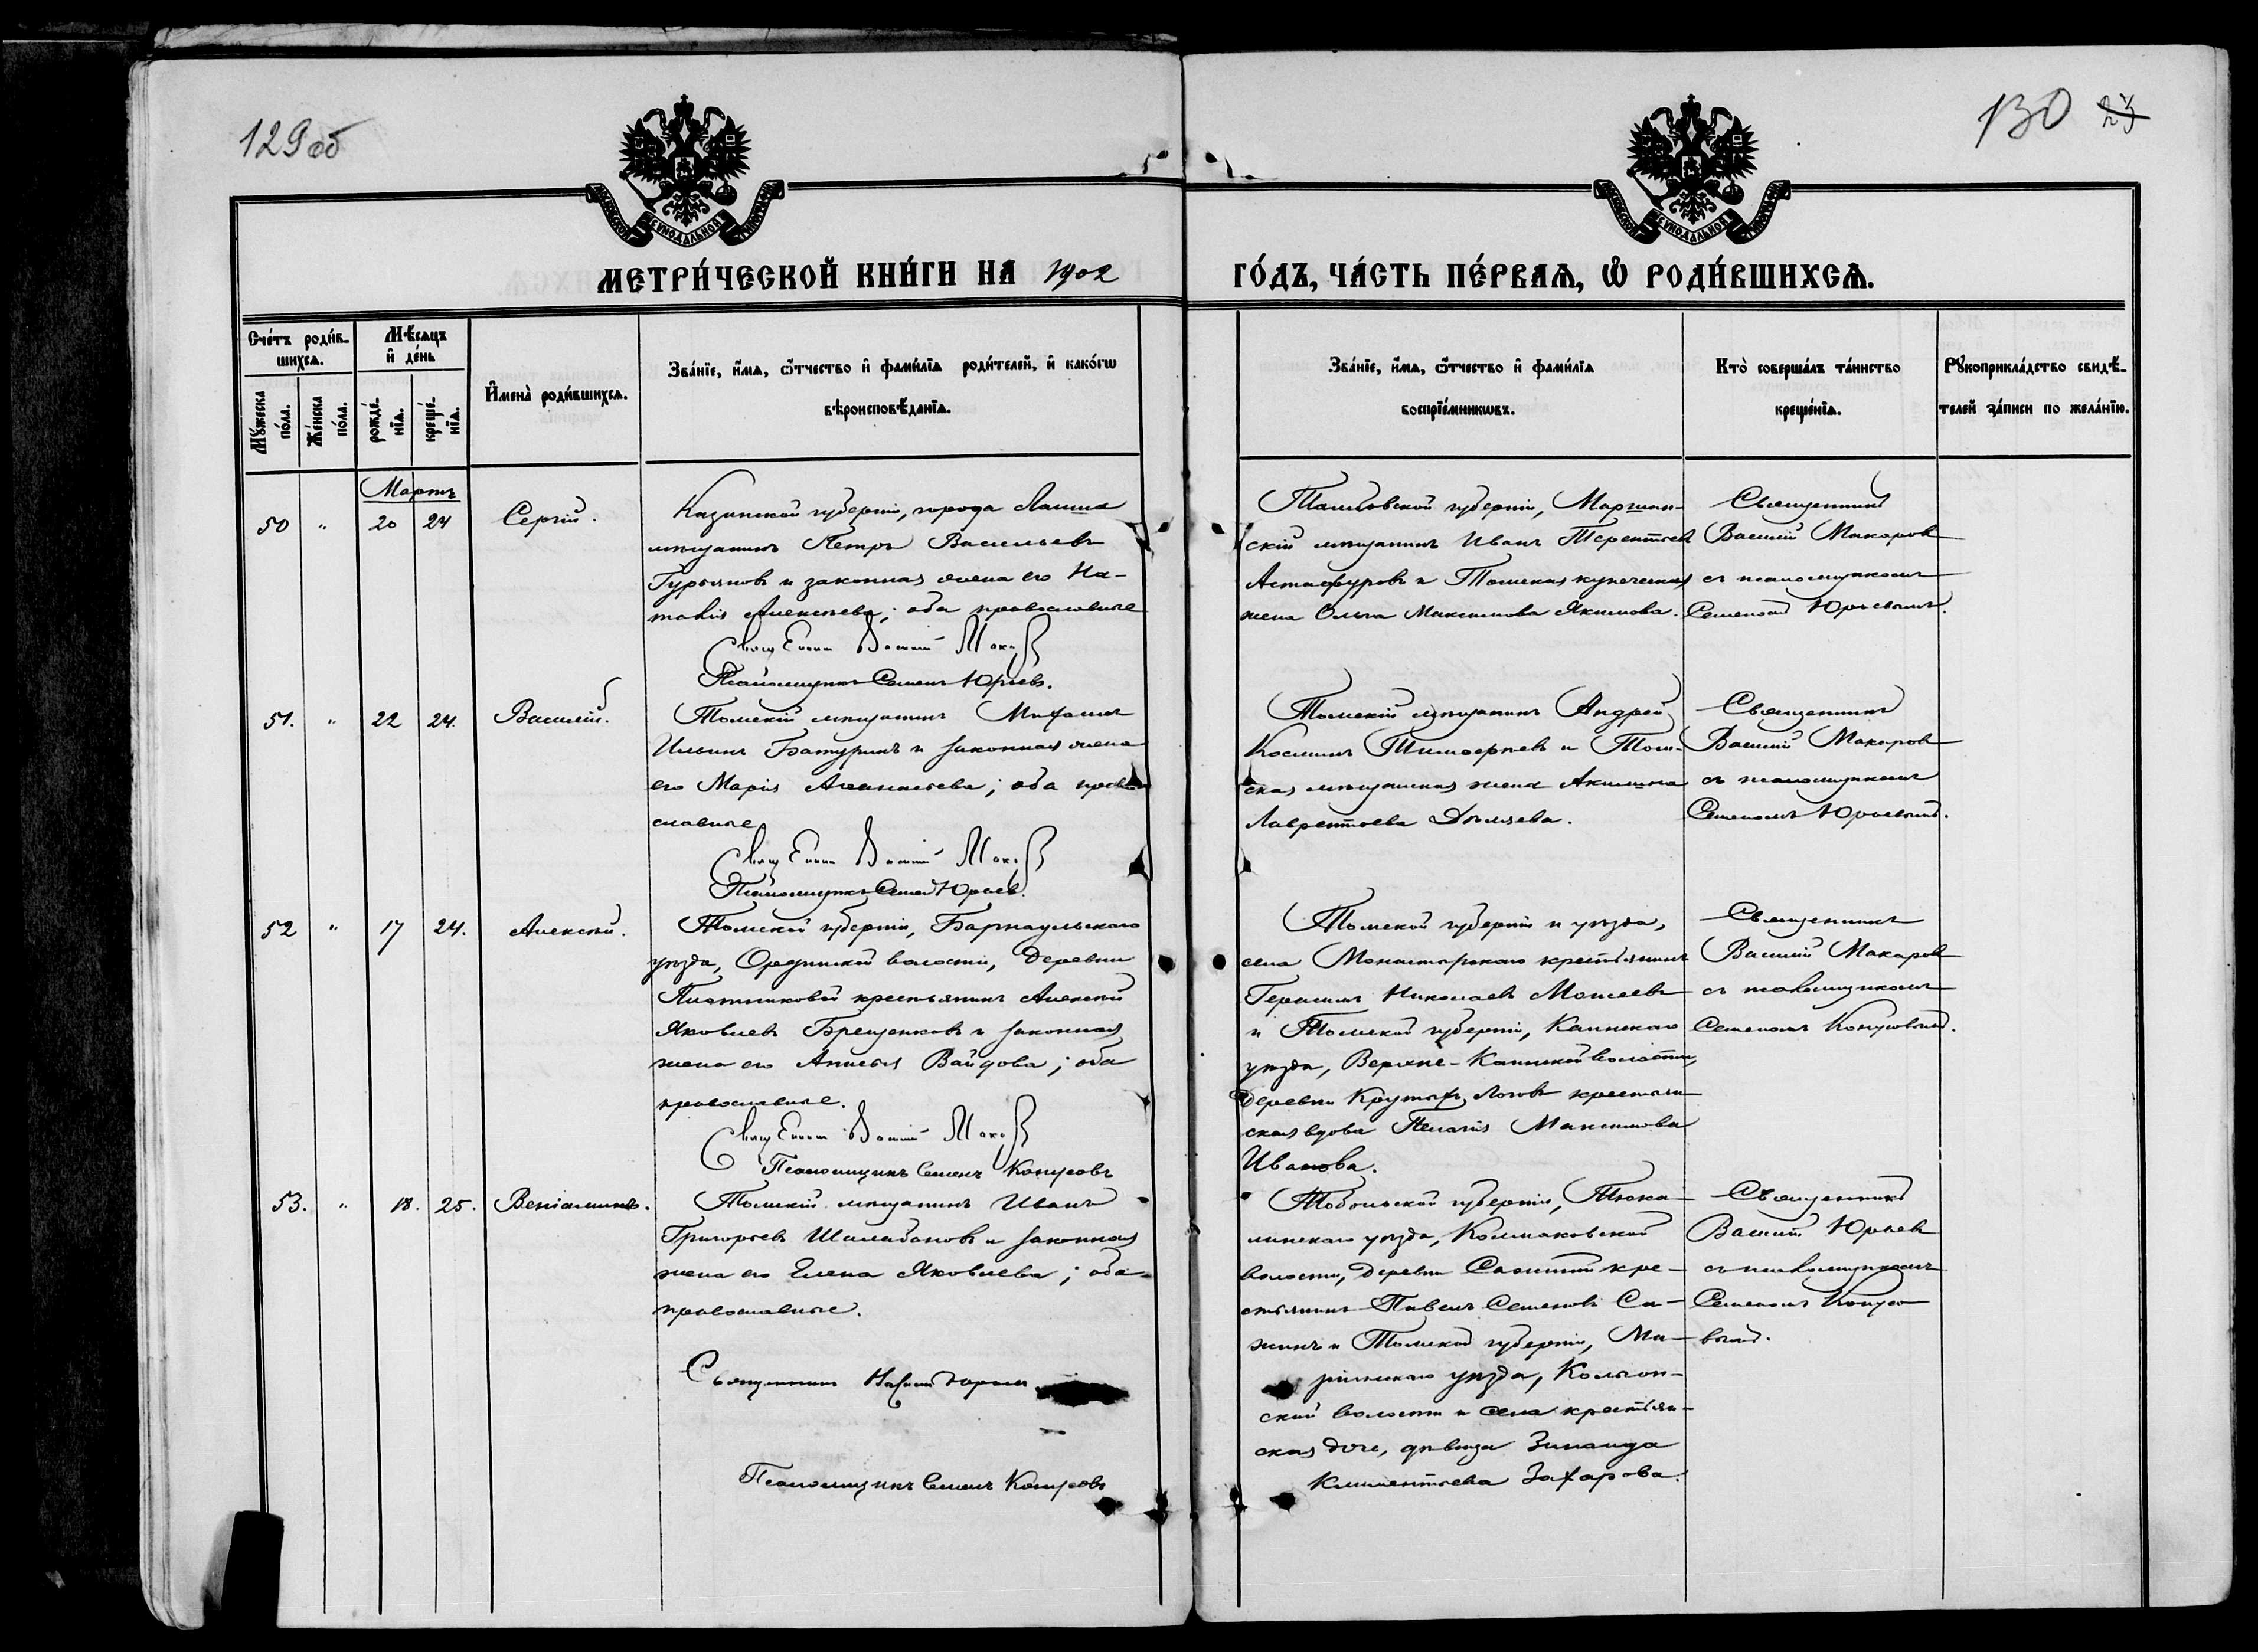 129 об
130 23
МЕТРИ́ЧЕСКОЙ КНИ́ГИ НА 1902
ГО́ДЪ, ЧА́СТЬ ПЕ́РВАЯ, Ѽ РОДИ́ВШИХСЯ.
Сче́тъ роди́в-
шихся.
Мѣ́сяцъ
и҆ де́нь
Му́жеска
по́ла.
Же́нска
по́ла.
рожде́-
нїя.
креще́-
нїя.
И҆мена̀ роди́вшихся.
Зва́нїе, и҆́мя, ѻ҆́тчество и҆ фами́лїя роди́телей, и҆ како́гѡ
вѣроисповѣ́данїя.
Зва́нїе, и҆́мя, ѻ҆́тчество и҆ фами́лїя
воспрїе́мникѡвъ.
Кто̀ соверша́лъ та́инство
креще́нїя.
Рꙋкоприкла́дство свидѣ́-
телей за́писи по жела́нїю.
Мартъ
50 " 20 24 Сергій.
Казанской губерніи, города Лаиша
мѣщанинъ Петръ Васильевъ
Гурьяновъ и законная жена его На-
талія Алексѣева; оба православные
Священникъ Василій Макаровъ
Псаломщикъ Семенъ Юрьевъ.
Тамбовской губерніи, Моршан-
скій мѣщанинъ Иванъ Терентьевъ
Астафуровъ и Томская купеческая
жена Ольга Максимова Якимова.
Священникъ
Василій Макаровъ
съ псаломщикомъ
Семеномъ Юрьевымъ.
51. " 22 24. Василій.
Томскій мѣщанинъ
Ильинъ Батуринъ и законная жена
его Марія Аѳанасьева; оба право-
славные
Священникъ Василій Макаровъ
Псаломщикъ Семенъ Юрьевъ.
Томскій мѣщанинъ Андрей
Косминъ Тимоѳеевъ и Том-
ская мѣщанская жена Акилина
Лаврентьева
Священникъ
Василій Макаровъ
съ псаломщикомъ
Семеномъ Юрьевымъ.
52 " 17 24. Алексѣй.
Томской губерніи, Барнаульскаго
уѣзда, Ордынской волости, деревни
Плотниковой крестьянинъ Алексѣй
Яковлевъ Брещенковъ и законная
жена его Анисья Вайдова; оба
православные.
Священникъ Василій Макаровъ
Псаломщикъ Семенъ Конусовъ
Томской губерніи и уѣзда,
села Монастырскаго крестьянинъ
Герасимъ Николаевъ Моисеевъ
и Томской губерніи, Каинскаго
уѣзда, Верхне-Каинской волости,
деревни Крутыхъ Логовъ крестьян
ская вдова Пелагія Максимова
Иванова.
Священникъ
Василій Макаровъ
съ псаломщикомъ
Семеномъ Конусовымъ.
53. " 18. 25. Веніаминъ.
Томскій мѣщанинъ Иванъ
Григорьевъ Шалабановъ и законная
жена его Елена Яковлева; оба
православные.
Священникъ Василій Юрьевъ
Псаломщикъ Семенъ Конусовъ
Тобольской губерніи, Тюка-
линскаго уѣзда, Колмаковской
волости, деревни кре-
стьянинъ Павелъ Семеновъ Са-
жинъ и Томской губерніи, Ма-
ріинскаго уѣзда, Колыон-
ской волости и села крестьян-
ская дочь, дѣвица Зинаида
Климентьева Захарова.
Священникъ
Василій Юрьевъ
съ псаломщикомъ
Семеномъ Конусо
вымъ.